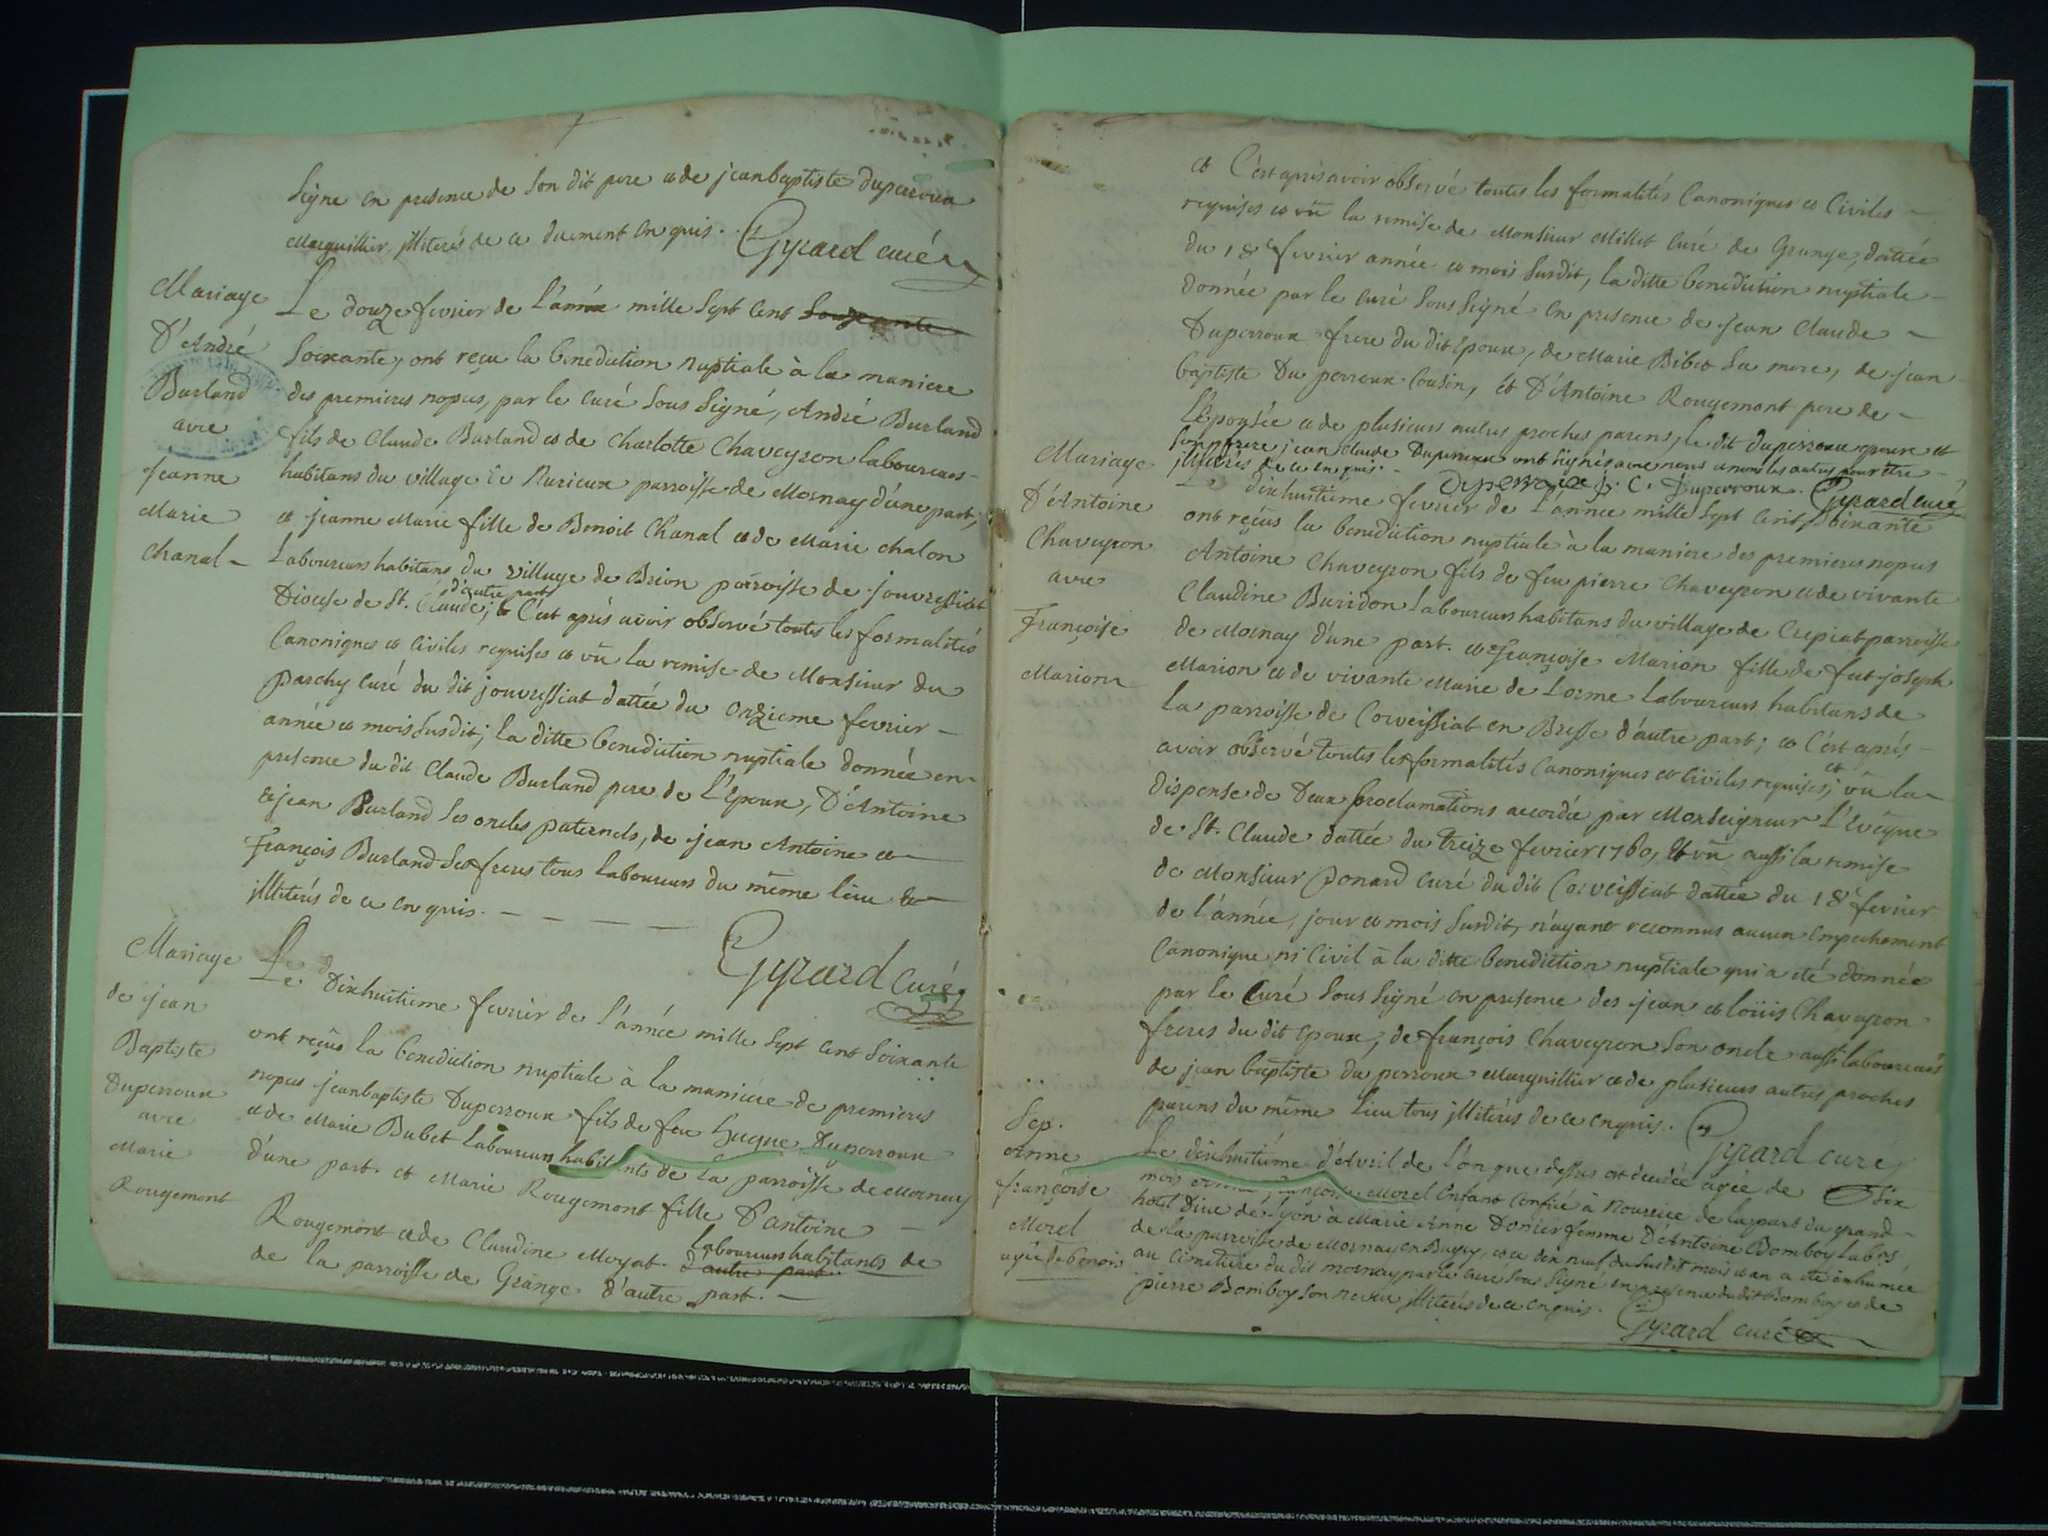 signe en presence de son dit pere et de jeanbaptiste duperroux
marguillier, illiterés de ce duement enquis. Gyrard curé
Mariage
D'André
Burland
avec
Jeanne
Marie
Chanal
Le douze fevrier de l'année mille sept cent
soixante, ont reçu la benediction nuptiale à la maniere
des premieres nopces, par le curé sous signé, André Burland
fils de Claude Burland et de Charlotte Chaveyron laboureurs
habitans du village de Nurieux parroisse de Mornay d'une part,
et jeanne Marie fille de Benoit Chanal et de Marie Chalon
Laboureurs habitans du village de Brion parroisse de jouvressiat
d'autre part
Diocese de St. Claude; C'est après avoir observé toutes les formalités
Canoniques et civiles requises et vû la remise de Monsieur du
parchy curé du dit jouvressiat dattée du onzieme fevrier
année et mois susdit; la ditte benediction nuptiale donnée en
presence du dit Claude Burland pere de l'Epoux, D'Antoine
et jean Burland ses oncles paternels, de jean Antoine et
François Burland ses freres tous laboureurs du même lieu
illiterés de ce enquis.
Gyrard curé
Mariage
de jean
Baptiste
Duperroux
avec
Marie
Rougemont
Le Dixhuitieme fevrier de l'année mille sept cent soixante
ont reçus la benediction nuptiale à la maniere de premieres
nopces jeanbaptiste Duperroux fils de feu hugue Duperroux
et de Marie Bubet laboureurs habitants de la parroisse de Mornay
d'une part. et Marie Rougemont fille D'antoine
Rougemont et de Claudine Moyat. d'autre part
laboureurs habitants de
de la parroisse de Grange d'autre part.
et C'est après avoir observé toutes les formalités Canoniques et Civiles
requises et vû la remise de Monsieur Millet curé de Grange, dattée
du 18e fevrier année et mois susdit, la ditte benediction nuptiale
donnée par le curé sous signé en presence de jean Claude
Duperroux frere du dit epoux, de Marie Bibet sa mere, de jean
baptiste Du perroux cousin, et D'Antoine Rougemont pere de
L'Epousée et de plusieurs autres proches parens, le dit duperroux epoux et
son frere jean claude Duperroux ont signés avec nous et non les autres pour être
illiterés de ce enquis. Duperroux j. C. Duperroux. Gyrard curé
Mariage
D'Antoine
Chaveyron
avec
Françoise
Marion
Le dixhuitieme fevrier de l'année mille sept cent soixante
ont reçus la benediction nuptiale à la maniere des premieres nopces
Antoine Chaveyron fils de feu pierre Chaveyron et de vivante
Claudine Buridon laboureurs habitans du village de Crepiat parroisse
de Mornay d'une part. et Françoise Marion fille de feu joseph
Marion et de vivante Marie de Lorme laboureurs habitans de
la parroisse de Corveissiat en Bresse d'autre part; et C'est après
avoir observé toutes les formalités Canoniques et civiles requises; et vû la
dispense de Deux proclamations accordée par Monseigneur L'Evêque
de St. Claude dattée du treize fevrier 1760, et vû aussi la remise
de Monsieur Ponard curé du dit Corveissiat dattée du 18e fevrier
de l'année, jour et mois susdit, n'ayant reconnus aucun empechement
Canonique ni Civil à la ditte benediction nuptiale qui a été donnée
par le Curé sous signé en presence des jean et loüis Chaveyron
freres du dit epoux, de françois Chaveyron son oncle aussi laboureurs
de jean baptiste du perroux Marguillier et de plusieurs autres proches
parens du même lieu tous illiterés de ce enquis. Gyrard curé
Sep.
Anne
françoise
Morel
agée de 6 mois
Le dixhuitieme d'Avril de l'an que dessus est decedée agée de six
mois anne françoise Morel enfant confiée à nourrice de la part du grand
hotel Dieu de Lyon à Marie Anne Donier femme D'Antoine Bomboy labrs
de la parroisse de Mornay en Bugey, et ce dix neuf du susdit mois et an a été inhumée
au cimetiere du dit mornay par le curé sous signé en presence du dit Bomboy et de
pierre Bomboy son neveu illiterés de ce enquis.
Gyrard curé